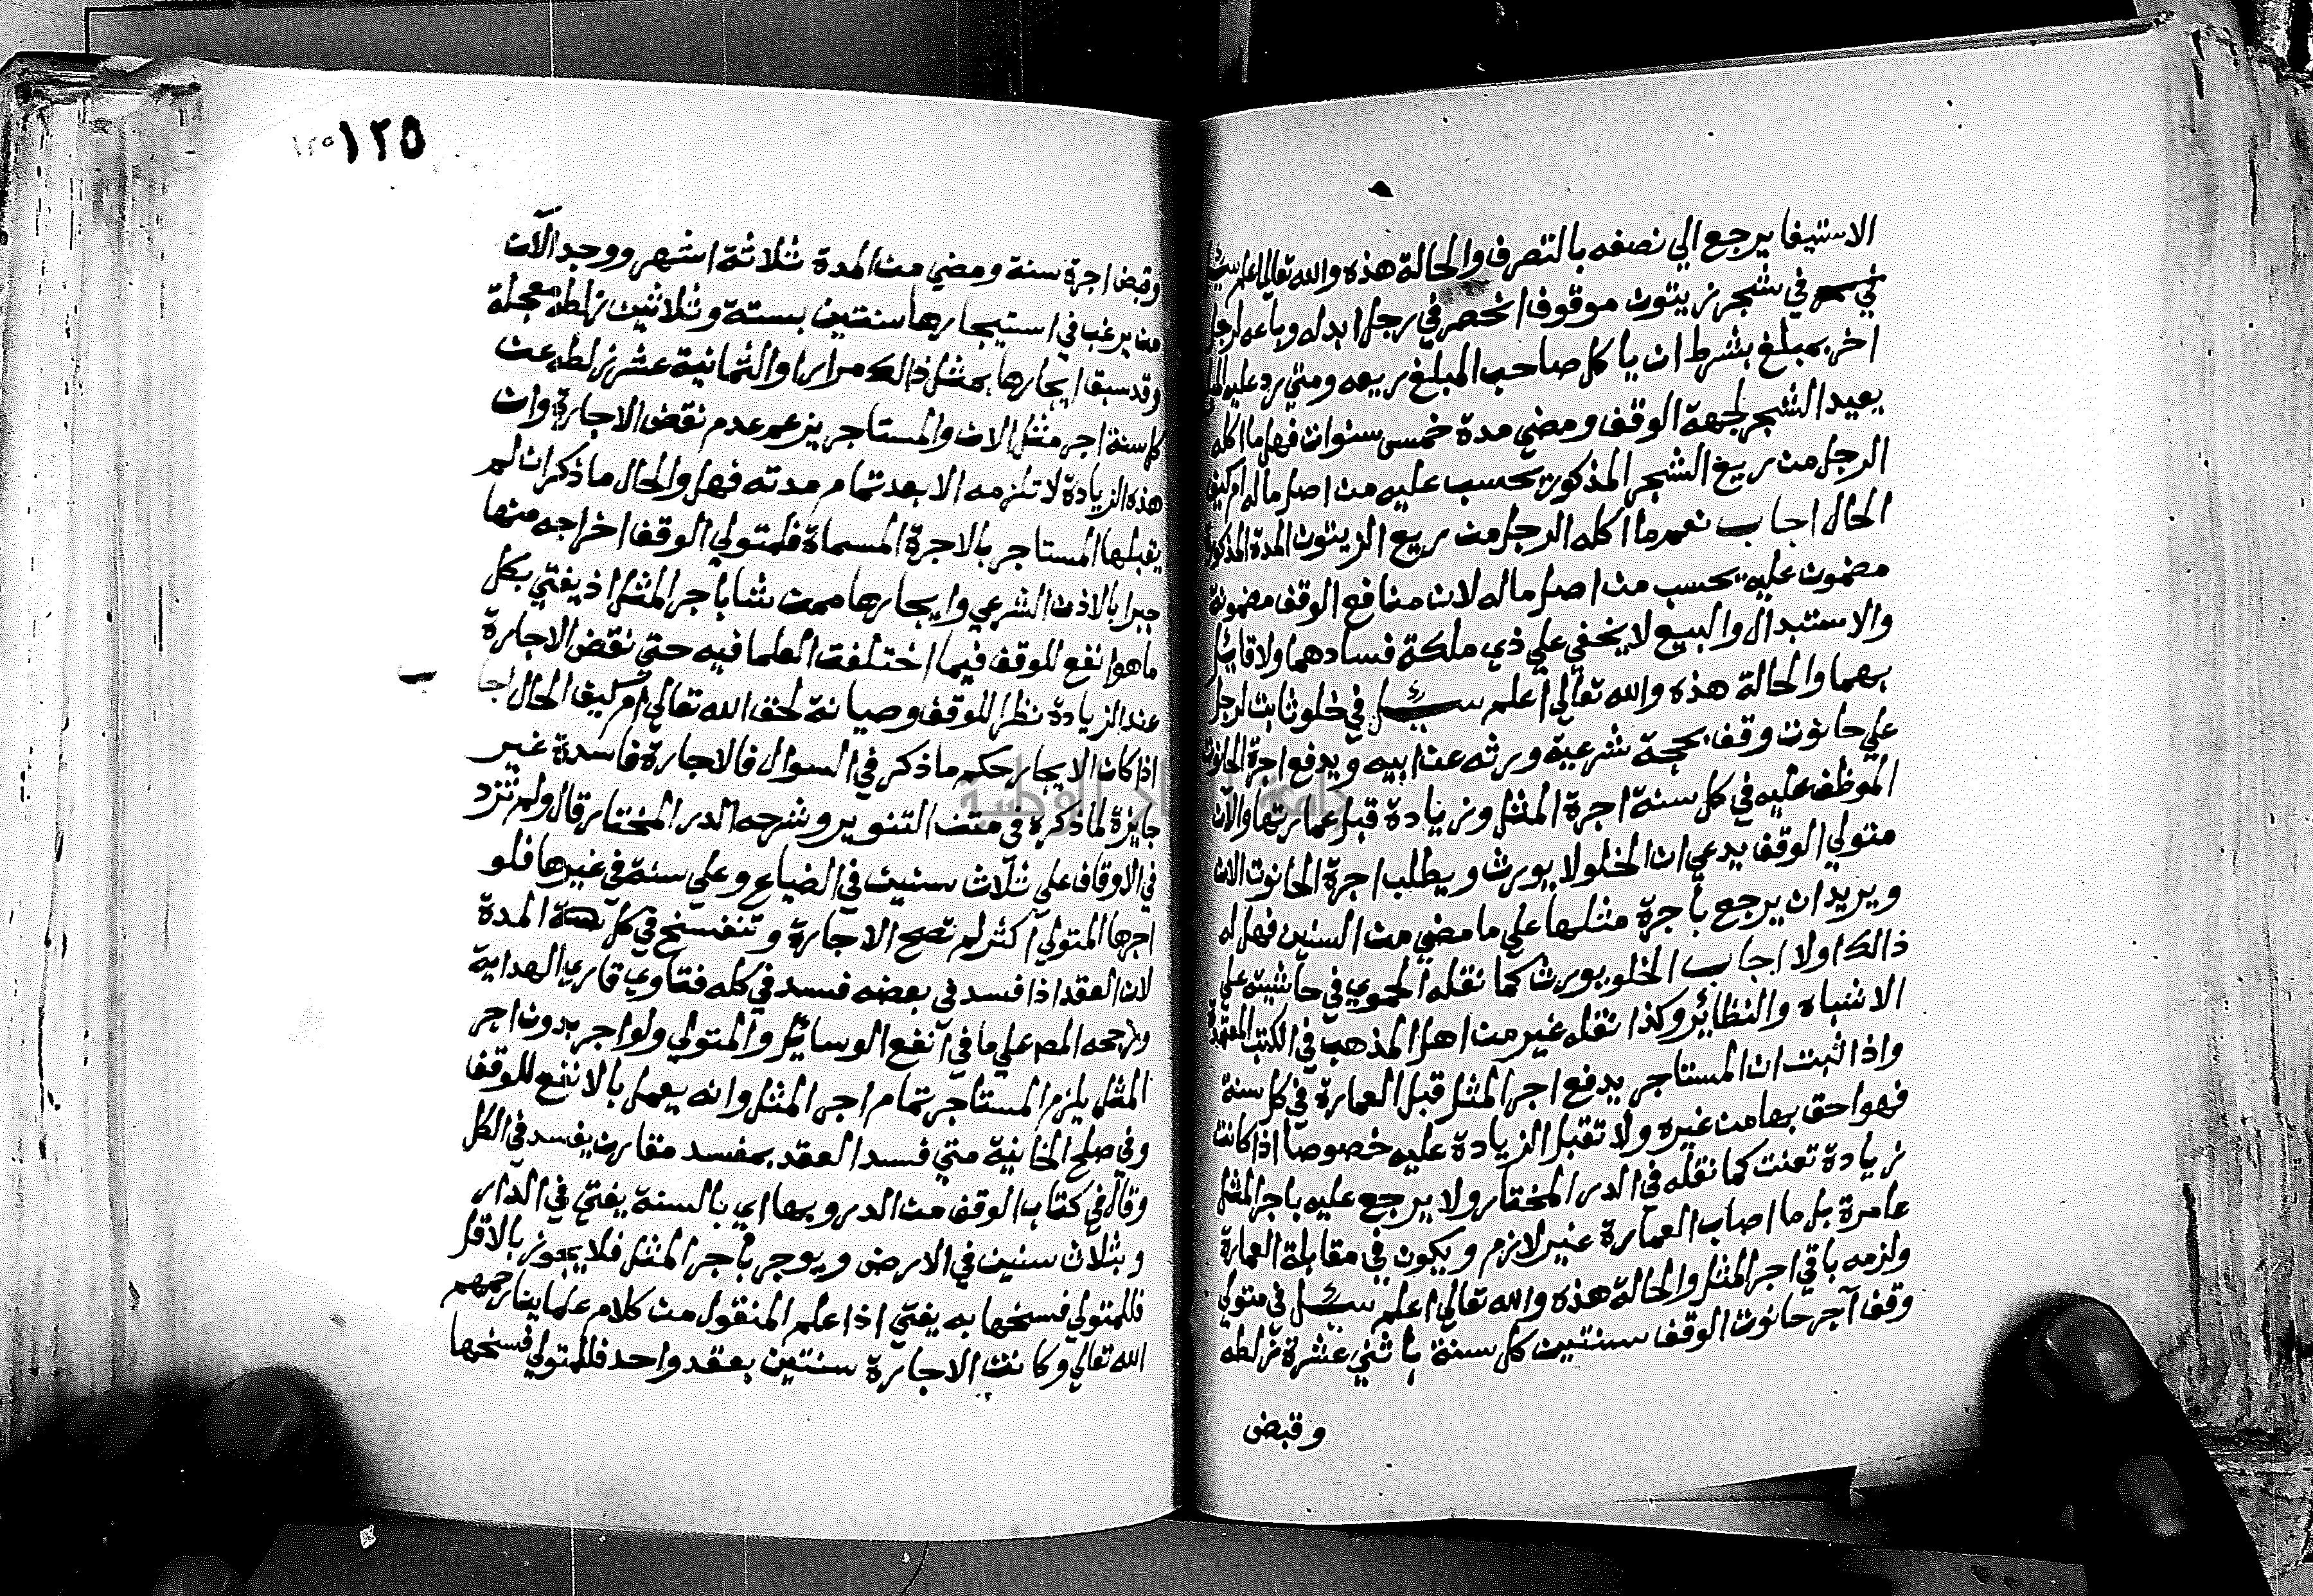 الاستيفا يرجع الي نصفه بالتصرف والحالة هذه والله تعالي اعلم سئل
في شجر زيتون موقوف انحصر في رجل ابدله وباعه لرجل
اخر بمبلغ بشرط ان ياكل صاحب المبلغ ريعه ومتي رد عليه
يعيد الشجر لجهة الوقف ومضي مدة خمس سنوات فهل ما اكله
الرجل من ريع الشجر المذكور يحسب عليه من اصل ماله ام كيف
الحال اجاب نعم ما اكله الرجل من ريع الزيتون المدة المذكورة
مضمون عليه يحسب من اصل ماله لان منافع الوقف مضمونة
والاستبدال والبيع لا يخفي علي ذي ملكة فسادهما ولا قايل
بهما والحالة هذه والله تعالي اعلم سئل في خلو ثابت لرجل
علي حانوت وقف بحجة شرعية ورثه عن ابيه ويدفع اجرة الحانوت
الموظف عليه في كل سنة اجرة المثل وزيادة قبل عمارتها والآن
متولي الوقف يدعي ان الخلو لا يورث ويطلب اجرة الحانوت الان
ويريد ان يرجع باجرة مثلها علي ما مضي من السنين فهل له
ذالك اولا اجاب الخلو يورث كما نقله الحموي في حاشيته علي
الاشباه والنظائر وكذا نقله غير من اهل المذهب في الكتب المعتمدة
واذا ثبت ان المستاجر يدفع اجر المثل قبل العمارة في كل سنة
فهو احق بها من غيره ولا تقبل الزيادة عليه خصوصا اذا كانت
زيادة تعنت كما نقله في الدر المختار ولا يرجع عليه باجر المثل
عامرة بل ما اصاب العمارة غير لازم ويكون في مقابلة العمارة
ولزمه باقي اجر المثل والحالة هذه والله تعالي اعلم سئل في متولي
وقف آجر حانوت الوقف سنتين كل سنة باثني عشرة زلطه
وقبض
١٢٥ ١٢٥
وقبض اجرة سنة ومضي من المدة ثلاثة اشهر ووجد الآن
من يرغب في استيجارها سنتين بستة وثلاثين زلطة معجلة
وقد سبق ايجارها بمثل ذالك مرارا والثمانية عشر زلطه عن
كل سنة اجر مثل الان والمستاجر يزعم عدم نقض الاجارة وان
هذه الزيادة لا تلزمه الا بعد تمام مدته فهل والحال ما ذكر ان لم
يقبلها المستاجر بالاجرة المسماة فلمتولي الوقف اخراجه منها
جبرا بالاذن الشرعي وايجارها ممن شا باجر المثل اذ يفتي بكل
ما هو انفع للوقف فيما اختلفت العلما فيه حتي نقض الاجارة
عند الزيادة نظرا للوقف وصيانة لحق الله تعالي ام كيف الحال اجاب
اذا كان الايجار حكم ما ذكر في السوال فالاجارة فاسدة غير
جايزة لما ذكره في متن التنوير وشرحه الدر المختار قال ولم تزد
في الاوقاف علي ثلاث سنين في الضياع وعلي سنة في غيرها فلو
اجرها المتولي اكثر لم تصح الاجارة وتنفسخ في كل المدة
لان العقد اذا فسد في بعضه فسد في كله فتاوي قاري الهداية
ورجحه المص علي ما في انفع الوسائل والمتولي ولو اجر بدون اجر
المثل يلزم المستاجر تمام اجر المثل وانه يعمل بالانفع للوقف
وفي صلح الخانية متي فسد العقد بمفسد مقارن يفسد في الكل
وقال في كتاب الوقف من الدر وبها اي بالسنة يفتي في الدار
وبثلاث سنين في الارض ويوجر باجر المثل فلا يجوز بالاقل
فللمتولي فسخها به يفتي اذا علم المنقول من كلام علماينا رحمهم
الله تعالي وكانت الاجارة سنتين بعقد واحد فللمتولي فسخها